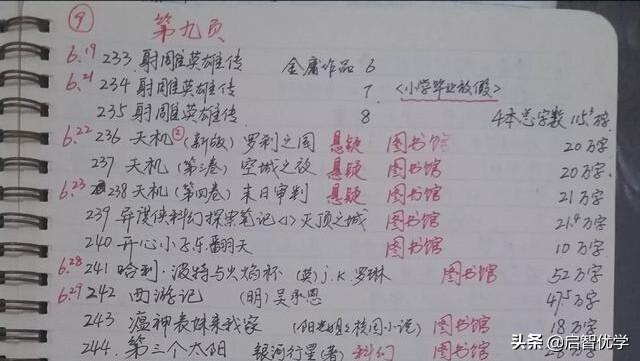 ⑨ 第九页
6.19 233 射雕英雄传 金庸作品 6
6.21 234 射雕英雄传 7 <小学毕业放假>
235 射雕英雄传 8 4本总字数 115万字
6.22 236 天机②(新版) 罗刹之国 悬疑 图书馆 20万字
237 天机(第三卷) 空城之夜 悬疑 图书馆 20万字
6.23 238 天机(第四卷) 末日审判 悬疑 图书馆 21万字
239 异谍侠科幻探索笔记<1> 灭顶之城 图书馆 21.4万字
240 开心小子乐翻天 图书馆 10万字
6.28 241 哈利·波特与火焰杯 (英) J.K.罗琳 图书馆 52万字
6.29 242 西游记 (明)吴承恩 47.5万字
243 瘟神表妹来我家 (阳光姐姐校园小说) 图书馆 18万字
244. 第三个太阳 银河行星(著) 科幻 图书馆
头条 @启智优学